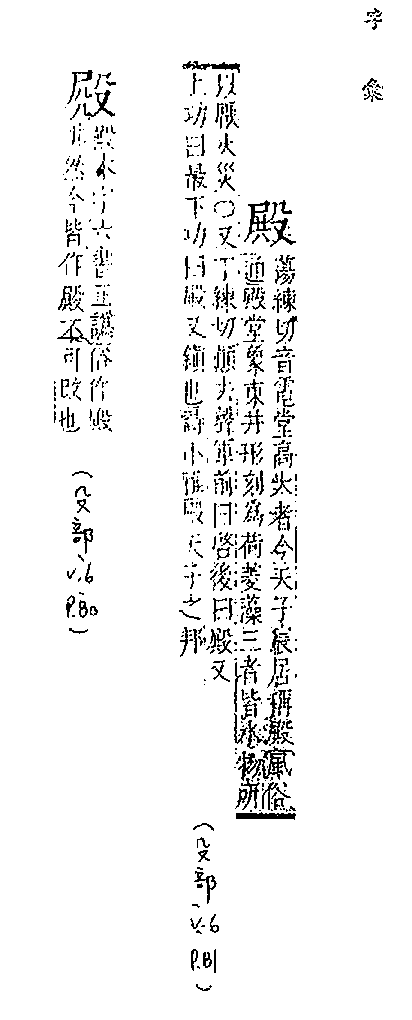 字彙
殿
蕩練切音電堂高大者今天子宸居稱殿風俗
通殿堂象東井形刻為荷菱藻三者皆水物所
以厭火災〇又丁練切顛去聲軍前曰啓後曰殿又
上功曰最下功曰殿又鎮也詩小雅殿天子之邦
(殳部 V.6 P.81)
殿本字六書正譌俗作殿
非然今皆作殿不可改也
(殳部 V.6 P.80)